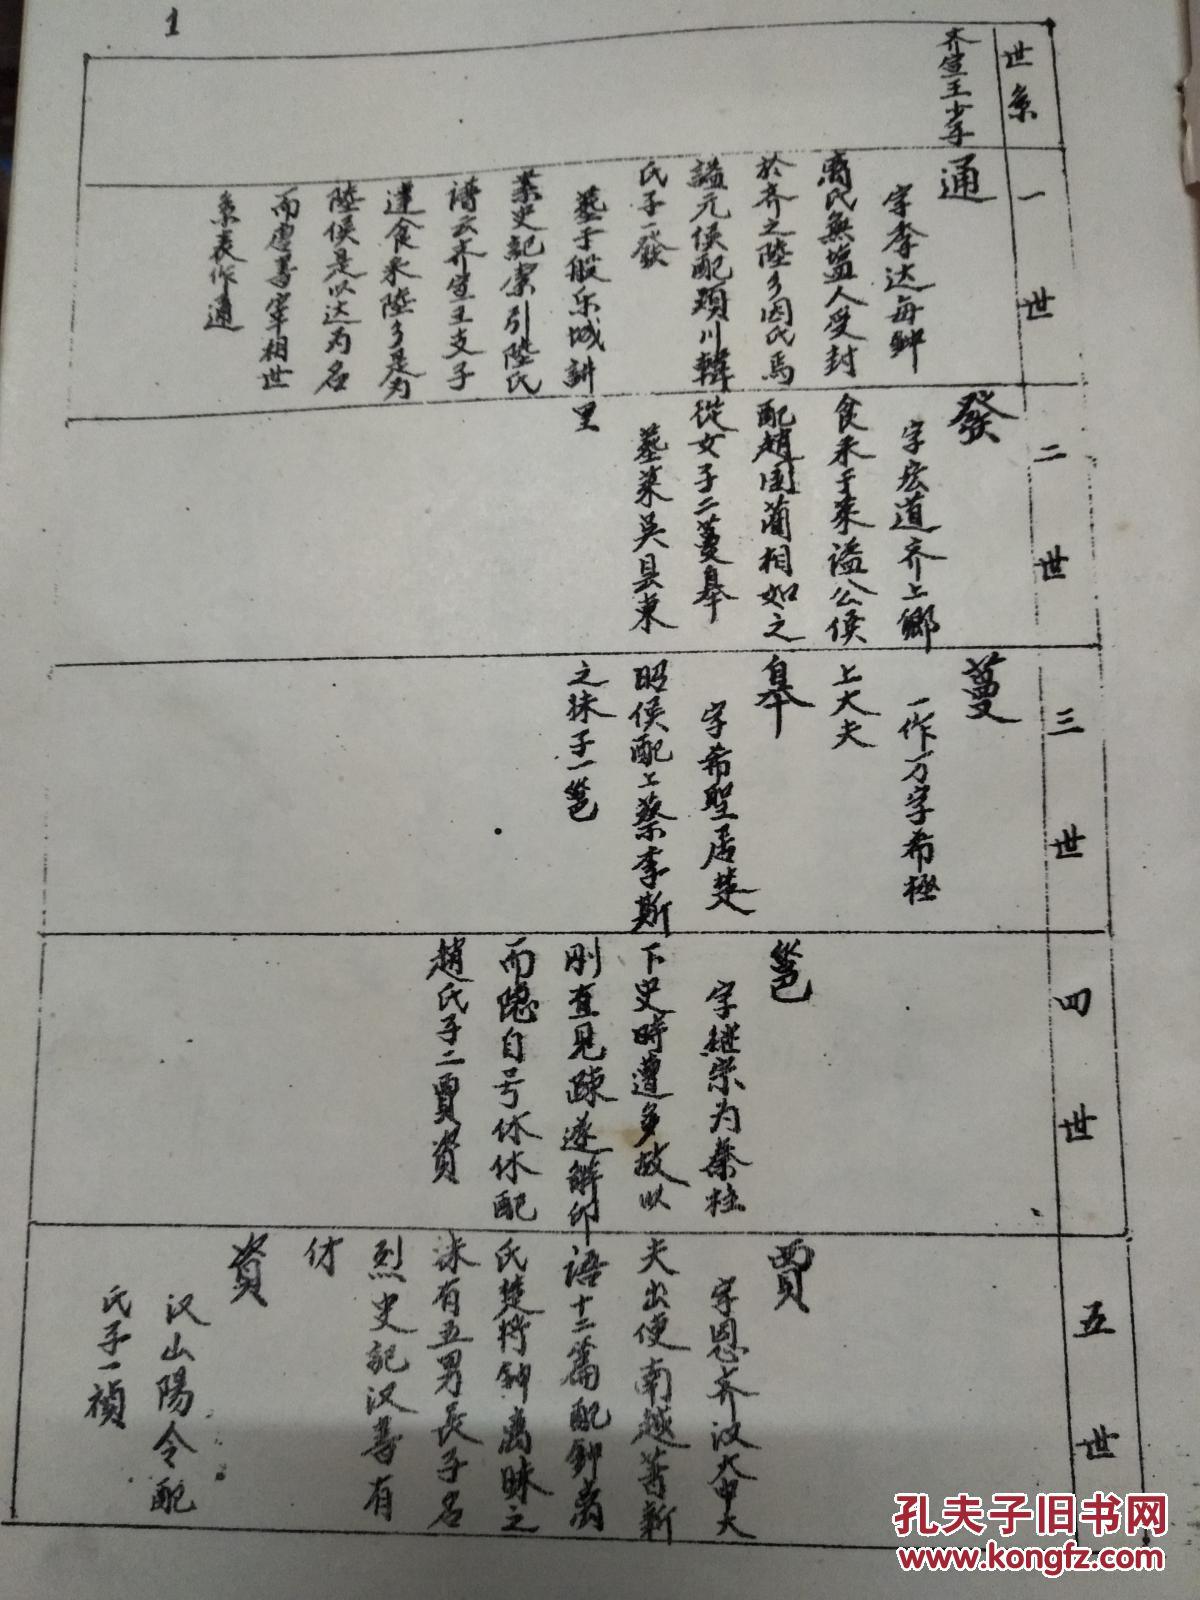 1
世系
齐宣王少子
一世
通
字季达母鈡
离氏無塩人受封
於齐之陸乡因氏焉
謚元侯配頴川韓
氏子一發
墓于般乐城訮里
案史記索引陸氏
譜云齐宣王支子
達食采陸乡是为
陸侯是以达为名
而唐書宰相世
系表作通
二世
發
字宏道齐上鄉
食采于莱谥公侯
配趙国蔺相如之
從女子二蔓皋
墓葬吳县東
三世
蔓
一作万字希極
上大夫
皋
字希聖居楚
昭侯配上蔡李斯
之妹子一邕
四世
邕
字継宗为秦柱
下史時遭多故以
刚直見疎遂解印
而隐自号休休配
趙氏子二賈資
五世
賈
字恩齐汉太中大
夫出使南越著新
语十二篇配鈡离
氏楚将鈡离昧之
妹有五男長子名
烈史記汉書有
传
資
汉山陽令配
氏子一禎
孔夫子旧书网
www.kongfz.com